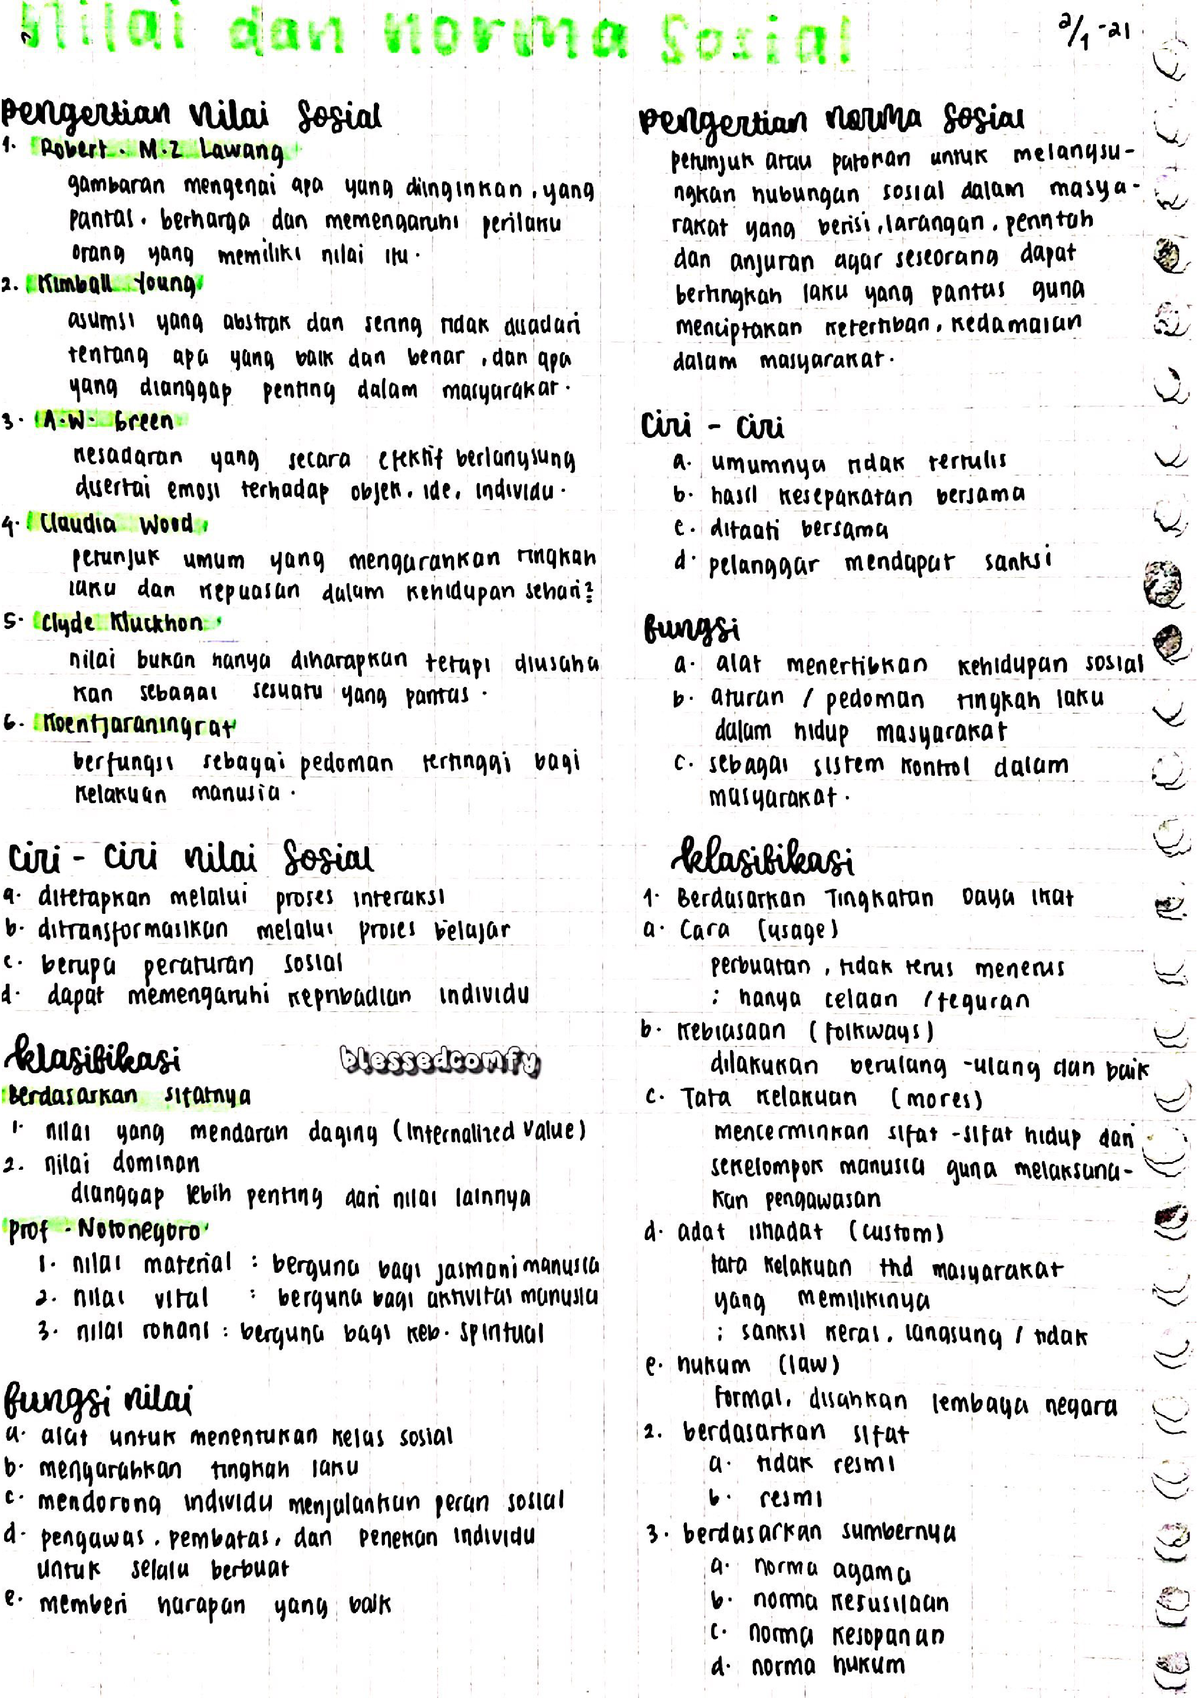 Nilai dan Norma Sosial
2/1-21
Pengertian Nilai Sosial
1. Robert. M.Z Lawang
gambaran mengenai apa yang diinginkan, yang
pantas, berharga dan memengaruhi perilaku
orang yang memiliki nilai itu.
2. Kimball Young
asumsi yang abstrak dan sering tidak disadari
tentang apa yang baik dan benar, dan apa
yang dianggap penting dalam masyarakat.
3. A.W. Green
kesadaran yang secara efektif berlangsung
disertai emosi terhadap objek, ide, individu.
4. Claudia Wood
petunjuk umum yang mengarahkan tingkah
laku dan kepuasan dalam kehidupan sehari2
5. Clyde Kluckhon
nilai bukan hanya diharapkan tetapi diusaha
kan sebagai sesuatu yang pantas.
6. Koentjaraningrat
berfungsi sebagai pedoman tertinggi bagi
kelakuan manusia.
Ciri - Ciri Nilai Sosial
a. ditetapkan melalui proses interaksi
b. ditransformasikan melalui proses belajar
c. berupa peraturan sosial
d. dapat memengaruhi kepribadian individu
Klasifikasi
blessedcomfy
Berdasarkan sifatnya
1. nilai yang mendarah daging (Internalized Value)
2. nilai dominan
dianggap lebih penting dari nilai lainnya
Prof. Notonegoro
1. nilai material : berguna bagi jasmani manusia
2. nilai vital : berguna bagi aktivitas manusia
3. nilai rohani : berguna bagi keb. spiritual
Fungsi Nilai
a. alat untuk menentukan kelas sosial
b. mengarahkan tingkah laku
c. mendorong individu menjalankan peran sosial
d. pengawas, pembatas, dan penekan individu
untuk selalu berbuat
e. memberi harapan yang baik
Pengertian Norma Sosial
petunjuk atau patokan untuk melangsu-
ngkan hubungan sosial dalam masya-
rakat yang berisi, larangan, perintah
dan anjuran agar seseorang dapat
bertingkah laku yang pantas guna
menciptakan ketertiban, kedamaian
dalam masyarakat.
Ciri - Ciri
a. umumnya tidak tertulis
b. hasil kesepakatan bersama
c. ditaati bersama
d. pelanggar mendapat sanksi
Fungsi
a. alat menertibkan kehidupan sosial
b. aturan / pedoman tingkah laku
dalam hidup masyarakat
c. sebagai sistem kontrol dalam
masyarakat.
Klasifikasi
1. Berdasarkan Tingkatan Daya Ikat
a. Cara (usage)
perbuatan, tidak terus menerus
; hanya celaan / teguran
b. Kebiasaan (folkways)
dilakukan berulang -ulang dan baik
c. Tata kelakuan (mores)
mencerminkan sifat -sifat hidup dari
sekelompok manusia guna melaksana-
kan pengawasan
d. adat ishadat (custom)
tata kelakuan thd masyarakat
yang memilikinya
; sanksi keras, langsung / tidak
e. hukum (law)
formal, disahkan lembaga negara
2. berdasarkan sifat
a. tidak resmi
b. resmi
3. berdasarkan sumbernya
a. norma agama
b. norma kesusilaan
c. norma kesopanan
d. norma hukum